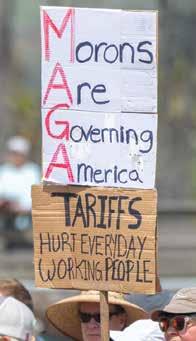 Morons
Are
Governing
America
TARIFFS
HURT EVERYDAY
WORKING PEOPLE